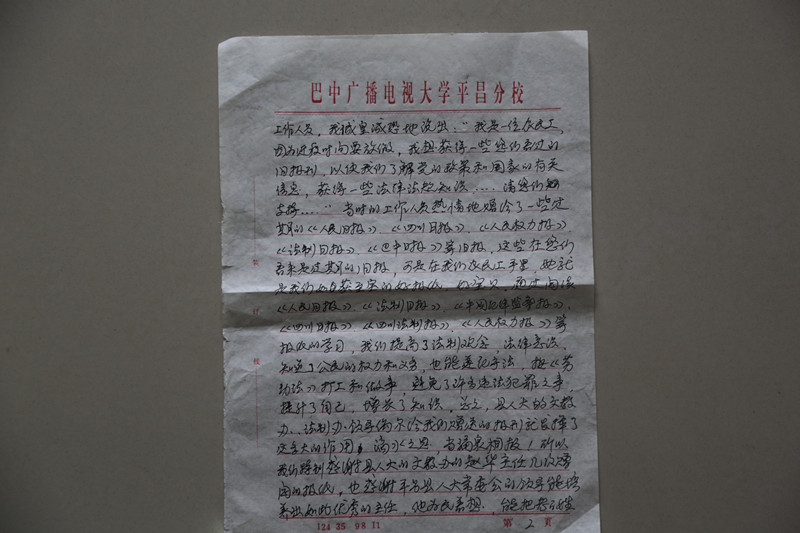 巴中广播电视大学平昌分校
工作人员,我诚皇诚恐地说出:“我是一位农民工,
因为还没时间要放假,我想获得一些您们看过的
旧报刊,以使我们了解党的政策和国家的有关
信息,获得一些法律法规知识……请您们
支持……”当时的工作人员热情地赠给了一些过
期的《人民日报》、《四川日报》、《人民权力报》、
《法制日报》、《巴中日报》等旧报,这些在您们
看来是过期的旧报,可是在我们农民工手里,她就
是我们如获至宝的好报纸。通过阅读
《人民日报》、《法制日报》、《中国纪检监察报》、
《四川日报》、《四川法制报》、《人民权力报》等
报纸的学习,我们提高了法制观念,法律意识,
知道了公民的权力和义务,也能遵纪守法,按《劳
动法》打工和做事,避免了许多违法犯罪之事,
提升了自己,增长了知识,总之,县人大的文教
办、法制办领导给我们赠送的报刊就发挥了
这么大的作用,滴水之恩,当涌泉相报!所以
我们特别感谢县人大的文教办的赵华主任几次赠
阅的报纸,也感谢平昌县人大常委会的领导能培
养出如此优秀的主任,他为民着想,能把
124 35 98 11
第 2 页